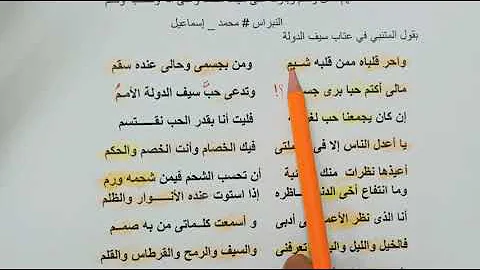 النبراس # محمد _ إسماعيل
يقول المتنبي في عتاب سيف الدولة
واحر قلباه ممن قلبه شبم ومن بجسمى وحالى عنده سقم
مالى أكتم حبا برى جسـ وتدعى حب سيف الدولة الأمم
إن كان يجمعنا حب لغر فليت أنا بقدر الحب نقتسم
يا أعدل الناس إلا فى ملتى فيك الخصام وأنت الخصم والحكم
أعيذها نظرات منك ئبة أن تحسب الشحم فيمن شحمه ورم
وما انتفاع أخى الدنـ ـاظره إذا استوت عنده الأنـوار والظلم
أنا الذى نظر الأعمـ أدبى و أسمعت كلماتى من به صمم
فالخيل والليل والبيـ تعرفنى والسيف والرمح والقرطاس والقلم